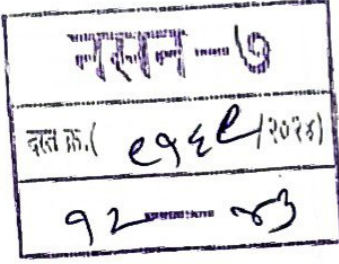 नसन-७
दस्त क्र.( ९१६९ /२०२४)
१२ — ४३